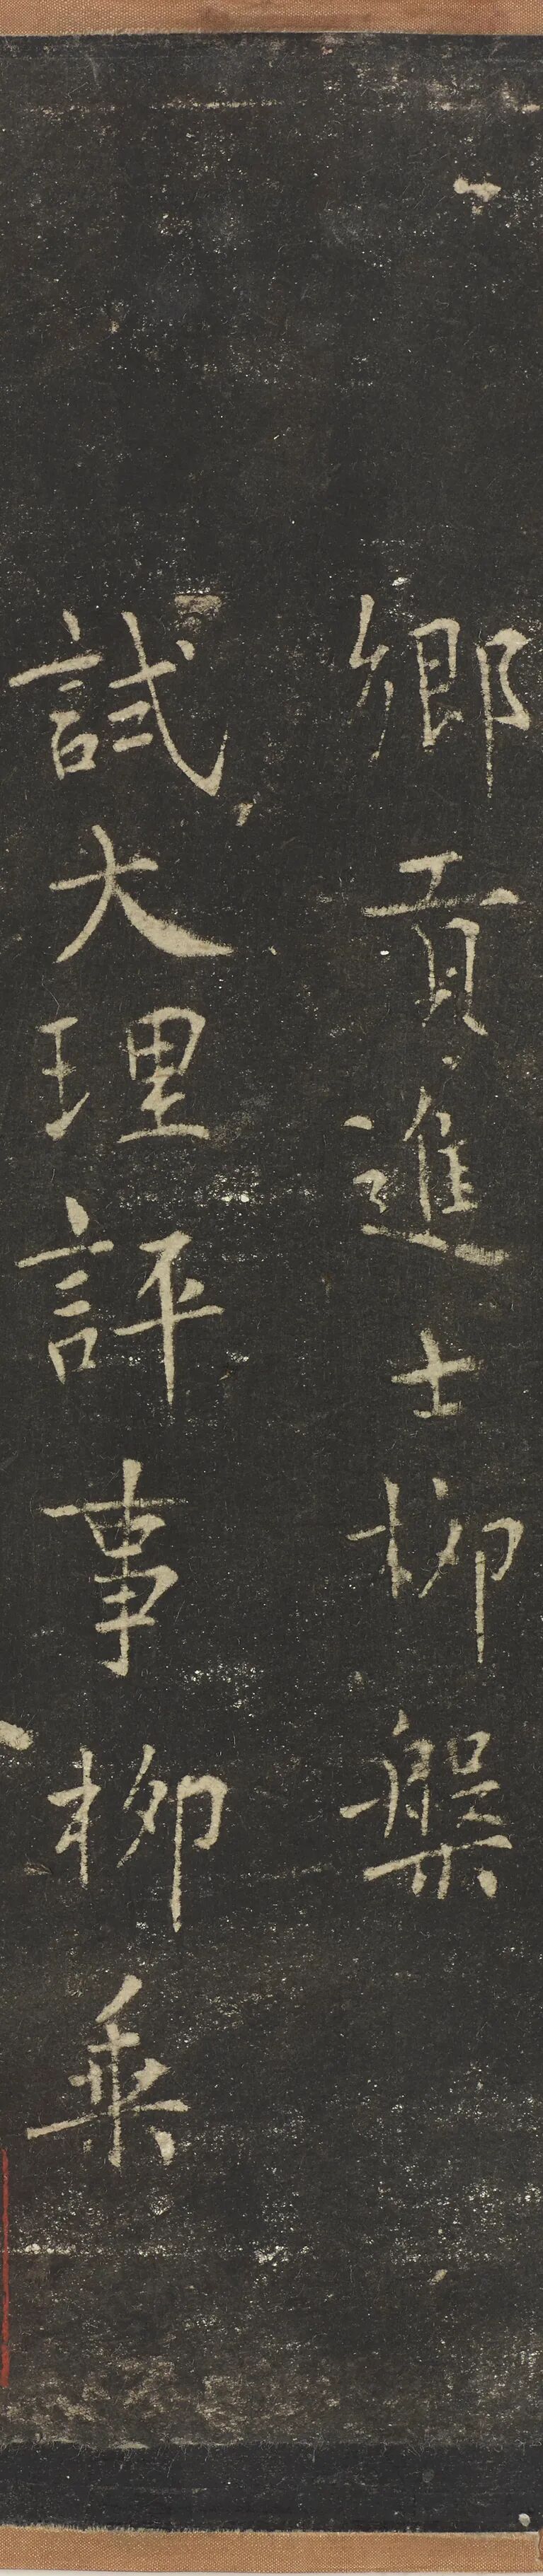 鄉貢進士柳槃
試大理評事柳乘